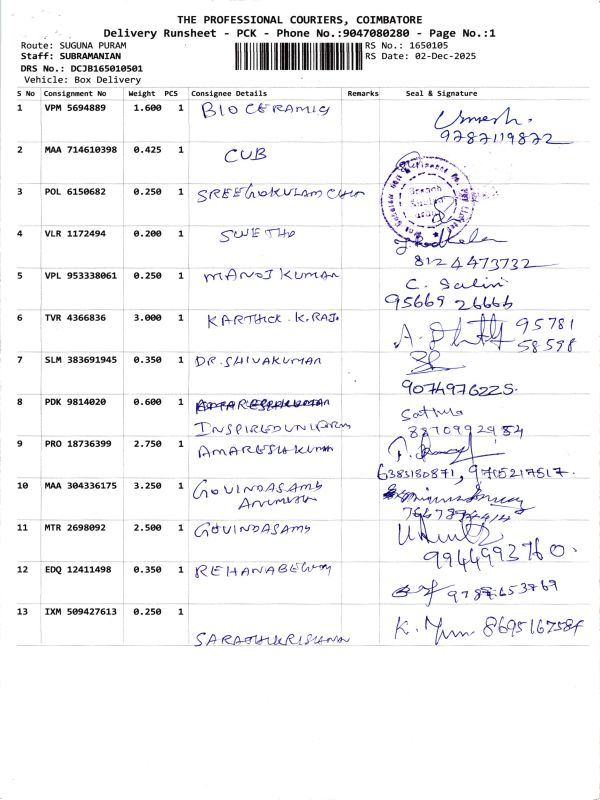 THE PROFESSIONAL COURIERS, COIMBATORE
Delivery Runsheet - PCK - Phone No.:9047080280 - Page No.:1
Route: SUGUNA PURAM RS No.: 1650105
Staff: SUBRAMANIAN RS Date: 02-Dec-2025
DRS No.: DCJB165010501
Vehicle: Box Delivery
S No Consignment No Weight PCS Consignee Details Remarks Seal & Signature
1 VPM 5694889 1.600 1 BIOCERAMIC
9787119872
2 MAA 714610398 0.425 1 CUB
Branch
3 POL 6150682 0.250 1 SREEGOKULAM CHIT
4 VLR 1172494 0.200 1 SWETHA
8124473732
5 VPL 953338061 0.250 1 MANOJ KUMAR C. Salini
95669 26666
6 TVR 4366836 3.000 1 KARTHICK . K. RAJ. 95781
58598
7 SLM 383691945 0.350 1 DR. SHIVAKUMAR
9074976225.
8 PDK 9814020 0.600 1
INSPIREDUNIFORM
9 PRO 18736399 2.750 1 AMARESHKUMAR
6383180871, 9705217517.
10 MAA 304336175 3.250 1 GOVINDASAMY
11 MTR 2698092 2.500 1 GOVINDASAMY
9944993760.
12 EDQ 12411498 0.350 1 REHANABEGUM
9787653769
13 IXM 509427613 0.250 1
SARATHIKRISHNA K. 8695167584